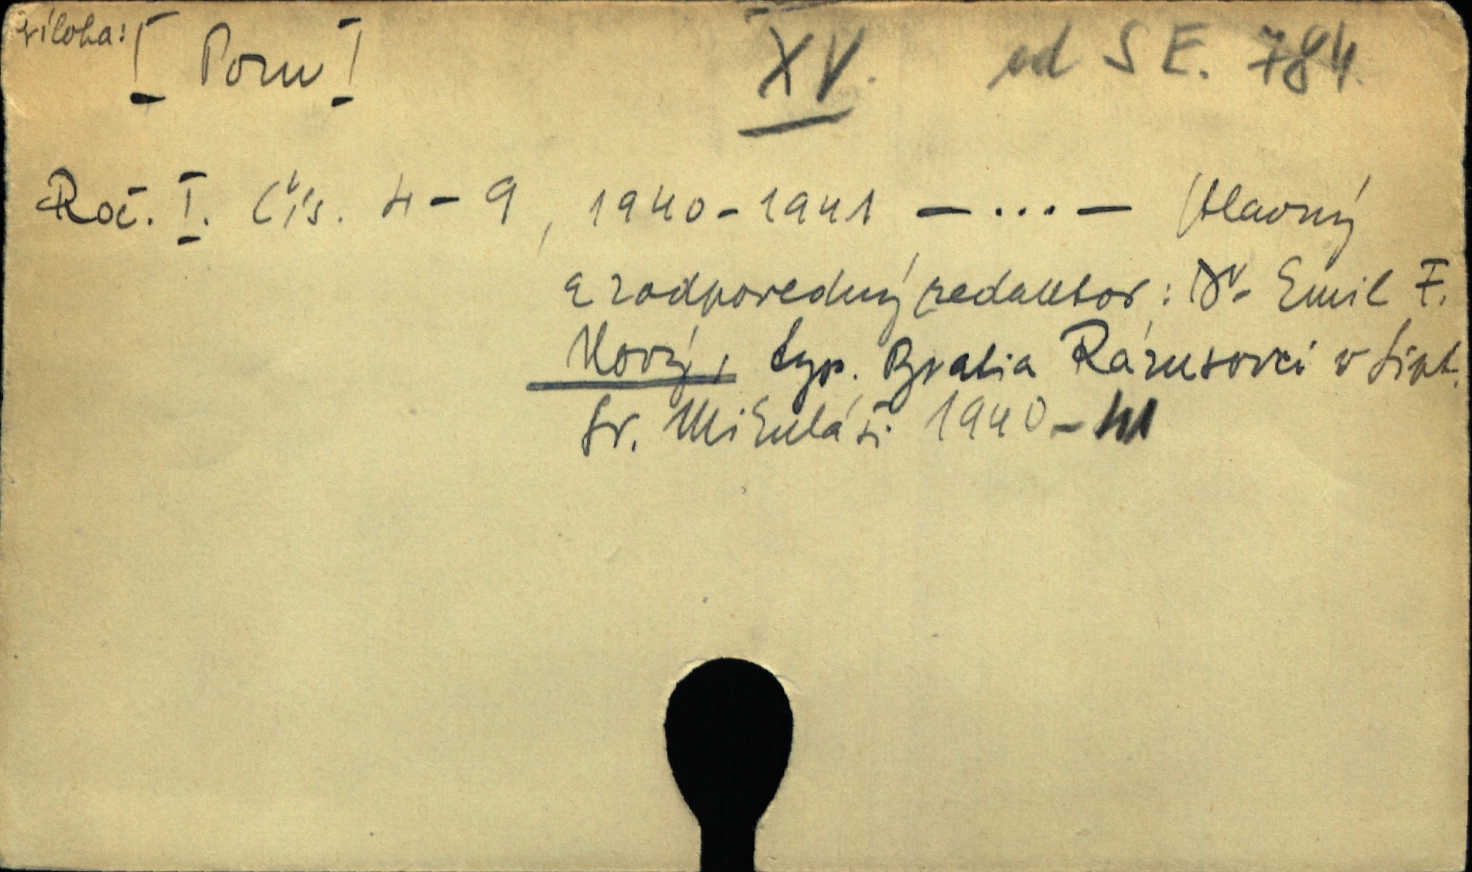 príloha: [Poru] XV. od SE. 784
Roč. I. Čís. 4-9, 1940-1941 — ... — Hlavný
a zodpovedný redaktor: Dr. Emil F.
Nový, typ. Bratia Rázusovci v Lipt.
Sv. Mikuláši 1940-41